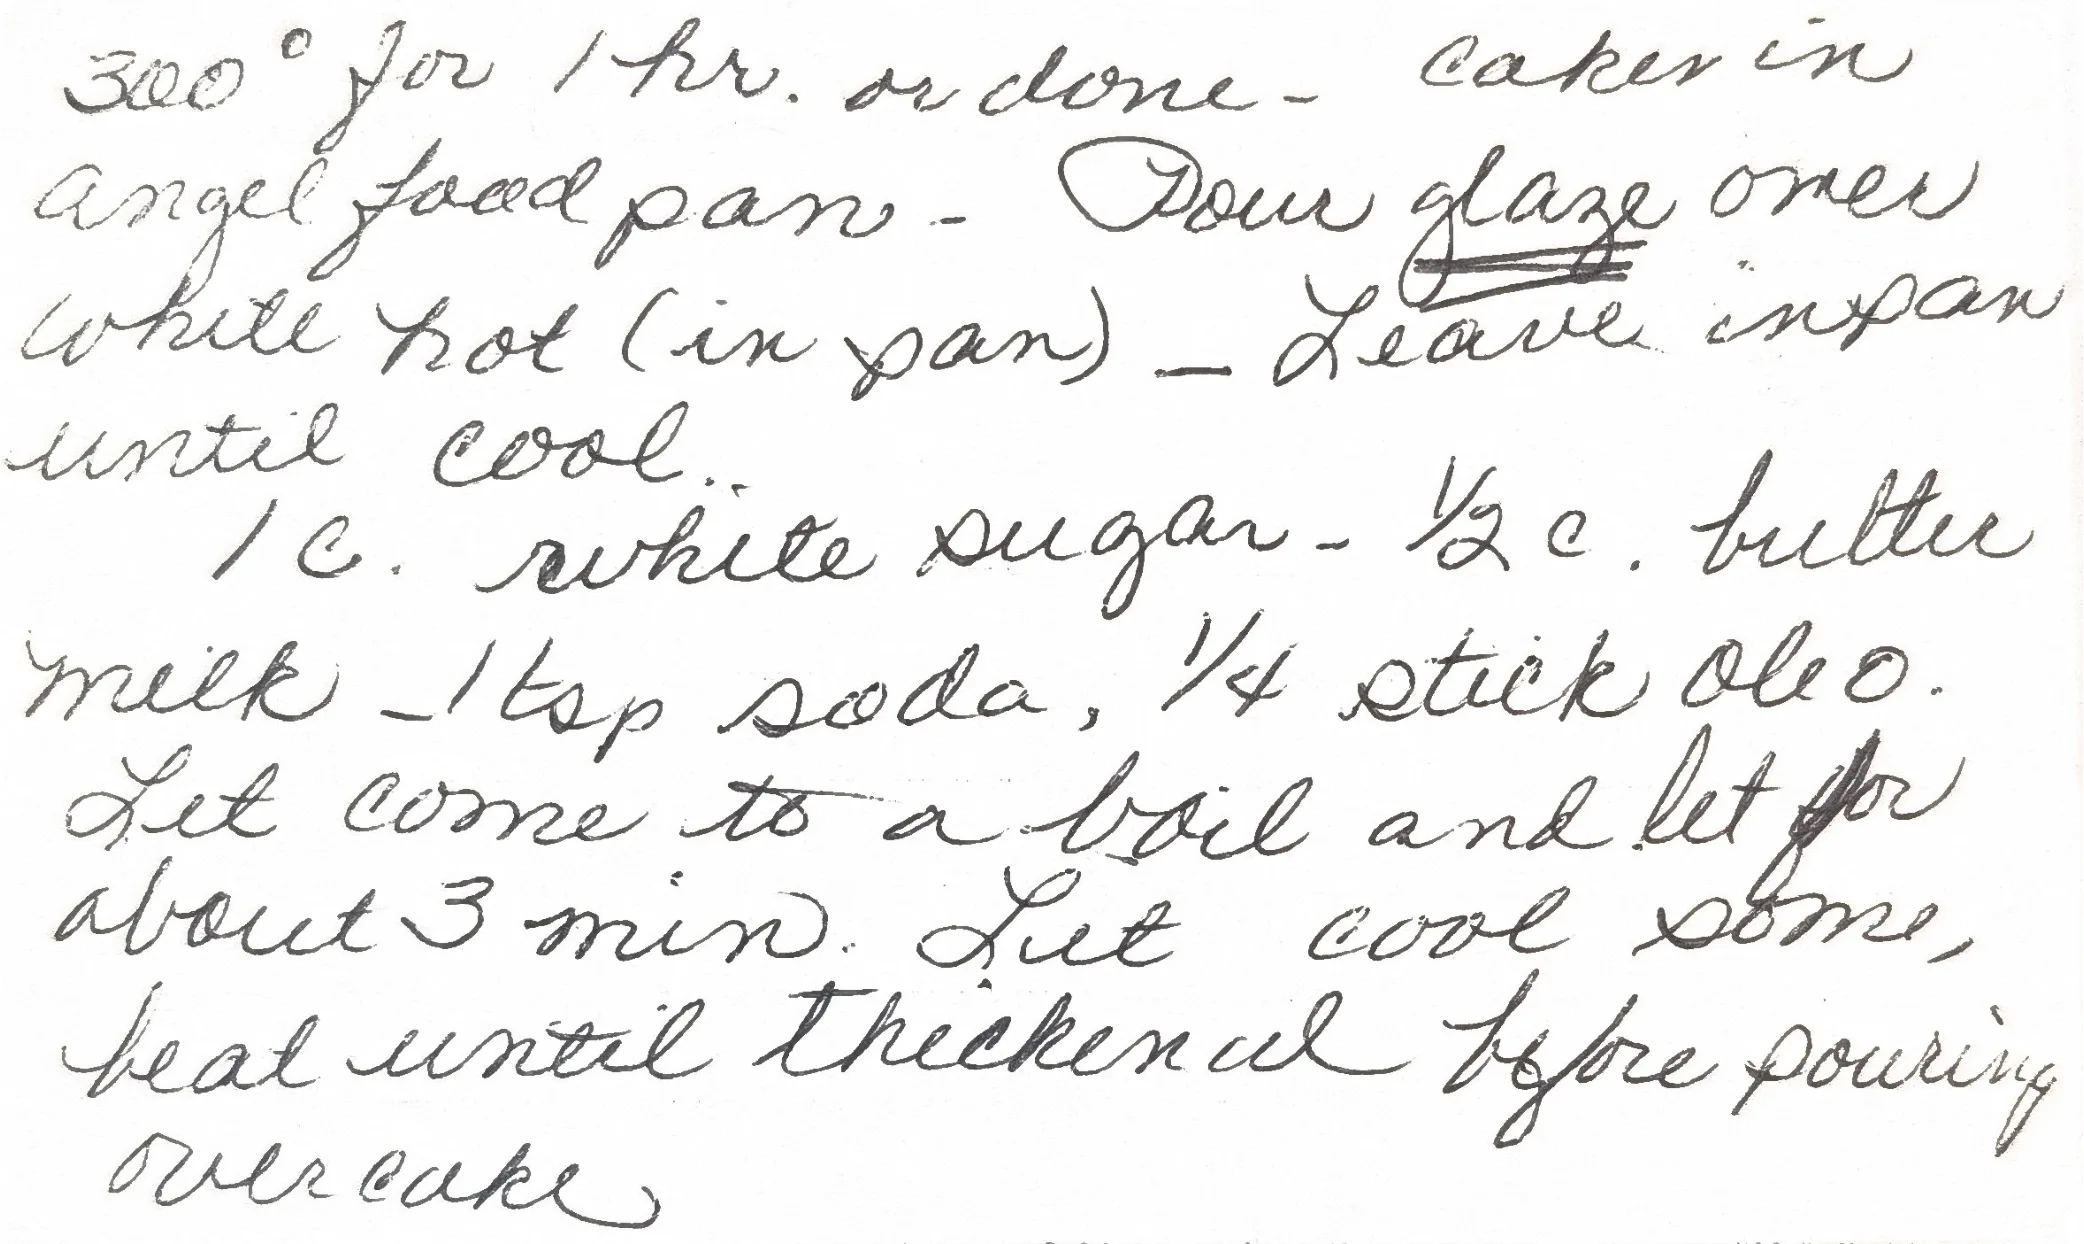 300° for 1 hr. or done - cakes in
angel food pan - Pour glaze over
while hot (in pan) - Leave in pan
until cool.
1 c. white sugar - 1/2 c. butter
milk - 1 tsp soda, 1/4 stick oleo.
Let come to a boil and let for
about 3 min. Let cool some,
beat until thickened before pouring
over cake